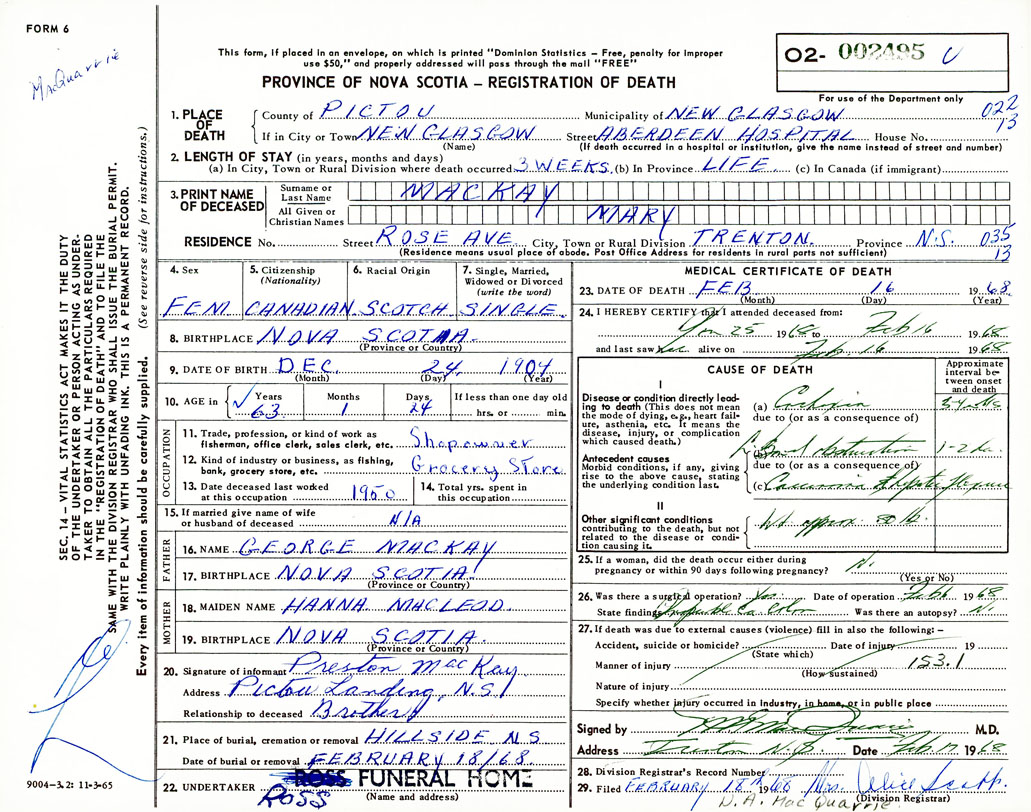 FORM 6
MacQuarrie
This form, if placed in an envelope, on which is printed "Dominion Statistics – Free, penalty for improper
use $50," and properly addressed will pass through the mail "FREE"
O2- 002495 U
PROVINCE OF NOVA SCOTIA – REGISTRATION OF DEATH
For use of the Department only
1. PLACE OF DEATH County of PICTOU Municipality of NEW GLASGOW 022
If in City or Town NEW GLASGOW Street ABERDEEN HOSPITAL House No. 13
(Name) (If death occurred in a hospital or institution, give the name instead of street and number)
2. LENGTH OF STAY (in years, months and days)
(a) In City, Town or Rural Division where death occurred 3 WEEKS (b) In Province LIFE (c) In Canada (if immigrant)
3. PRINT NAME OF DECEASED Surname or Last Name MACKAY
All Given or Christian Names MARY
RESIDENCE No. Street ROSE AVE City, Town or Rural Division TRENTON Province N.S. 035
(Residence means usual place of abode. Post Office Address for residents in rural parts not sufficient) 13
4. Sex 5. Citizenship (Nationality) 6. Racial Origin 7. Single, Married, Widowed or Divorced (write the word)
FEM CANADIAN SCOTCH SINGLE
8. BIRTHPLACE NOVA SCOTIA
(Province or Country)
9. DATE OF BIRTH DEC. 24 1904
(Month) (Day) (Year)
10. AGE in Years Months Days If less than one day old
63 1 24 hrs. or min.
OCCUPATION
11. Trade, profession, or kind of work as fisherman, office clerk, sales clerk, etc. Shopowner
12. Kind of industry or business, as fishing, bank, grocery store, etc. Grocery Store
13. Date deceased last worked at this occupation 1950 14. Total yrs. spent in this occupation
15. If married give name of wife or husband of deceased N/A
FATHER
16. NAME GEORGE MACKAY
17. BIRTHPLACE NOVA SCOTIA
(Province or Country)
MOTHER
18. MAIDEN NAME HANNA MACLEOD
19. BIRTHPLACE NOVA SCOTIA
(Province or Country)
20. Signature of informant Preston MacKay
Address Pictou Landing, N.S.
Relationship to deceased Brother
21. Place of burial, cremation or removal HILLSIDE N S
Date of burial or removal FEBRUARY 18/68
ROSS FUNERAL HOME
22. UNDERTAKER ROSS
(Name and address)
MEDICAL CERTIFICATE OF DEATH
23. DATE OF DEATH FEB 16 1968
(Month) (Day) (Year)
24. I HEREBY CERTIFY that I attended deceased from:
Jan 25 1968 to Feb 16 1968
and last saw her alive on Feb 16 1968
CAUSE OF DEATH
Approximate interval between onset and death
I
Disease or condition directly leading to death (This does not mean the mode of dying, e.g., heart failure, asthenia, etc. It means the disease, injury, or complication which caused death.)
(a) Cachexia
due to (or as a consequence of)
Antecedent causes
Morbid conditions, if any, giving rise to the above cause, stating the underlying condition last.
(b) Bowel obstruction
due to (or as a consequence of)
(c) Carcinoma Hepatic flexure
II
Other significant conditions contributing to the death, but not related to the disease or condition causing it.
Wt approx. 80 lb.
25. If a woman, did the death occur either during pregnancy or within 90 days following pregnancy? N.
(Yes or No)
26. Was there a surgical operation? Yes Date of operation Feb 1968
State findings Inoperable Ca. Colon Was there an autopsy? N.
27. If death was due to external causes (violence) fill in also the following: –
Accident, suicide or homicide? Date of injury 19
(State which)
Manner of injury 153.1
(How sustained)
Nature of injury
Specify whether injury occurred in Industry, in home, or in public place
Signed by M.D.
Address Trenton N.S. Date Feb 17 1968
28. Division Registrar's Record Number
29. Filed FEBRUARY 18 1968 Mrs. Alice Scott
(Division Registrar)
D. A. MacQuarrie
SEC. 14 – VITAL STATISTICS ACT MAKES IT THE DUTY
OF THE UNDERTAKER OR PERSON ACTING AS UNDER-
TAKER TO OBTAIN ALL THE PARTICULARS REQUIRED
IN THE "REGISTRATION OF DEATH" AND TO FILE THE
SAME WITH THE DIVISION REGISTRAR WHO SHALL ISSUE THE BURIAL PERMIT.
WRITE PLAINLY WITH UNFADING INK. THIS IS A PERMANENT RECORD.
Every item of information should be carefully supplied. (See reverse side for instructions.)
9004-3.2: 11-3-65